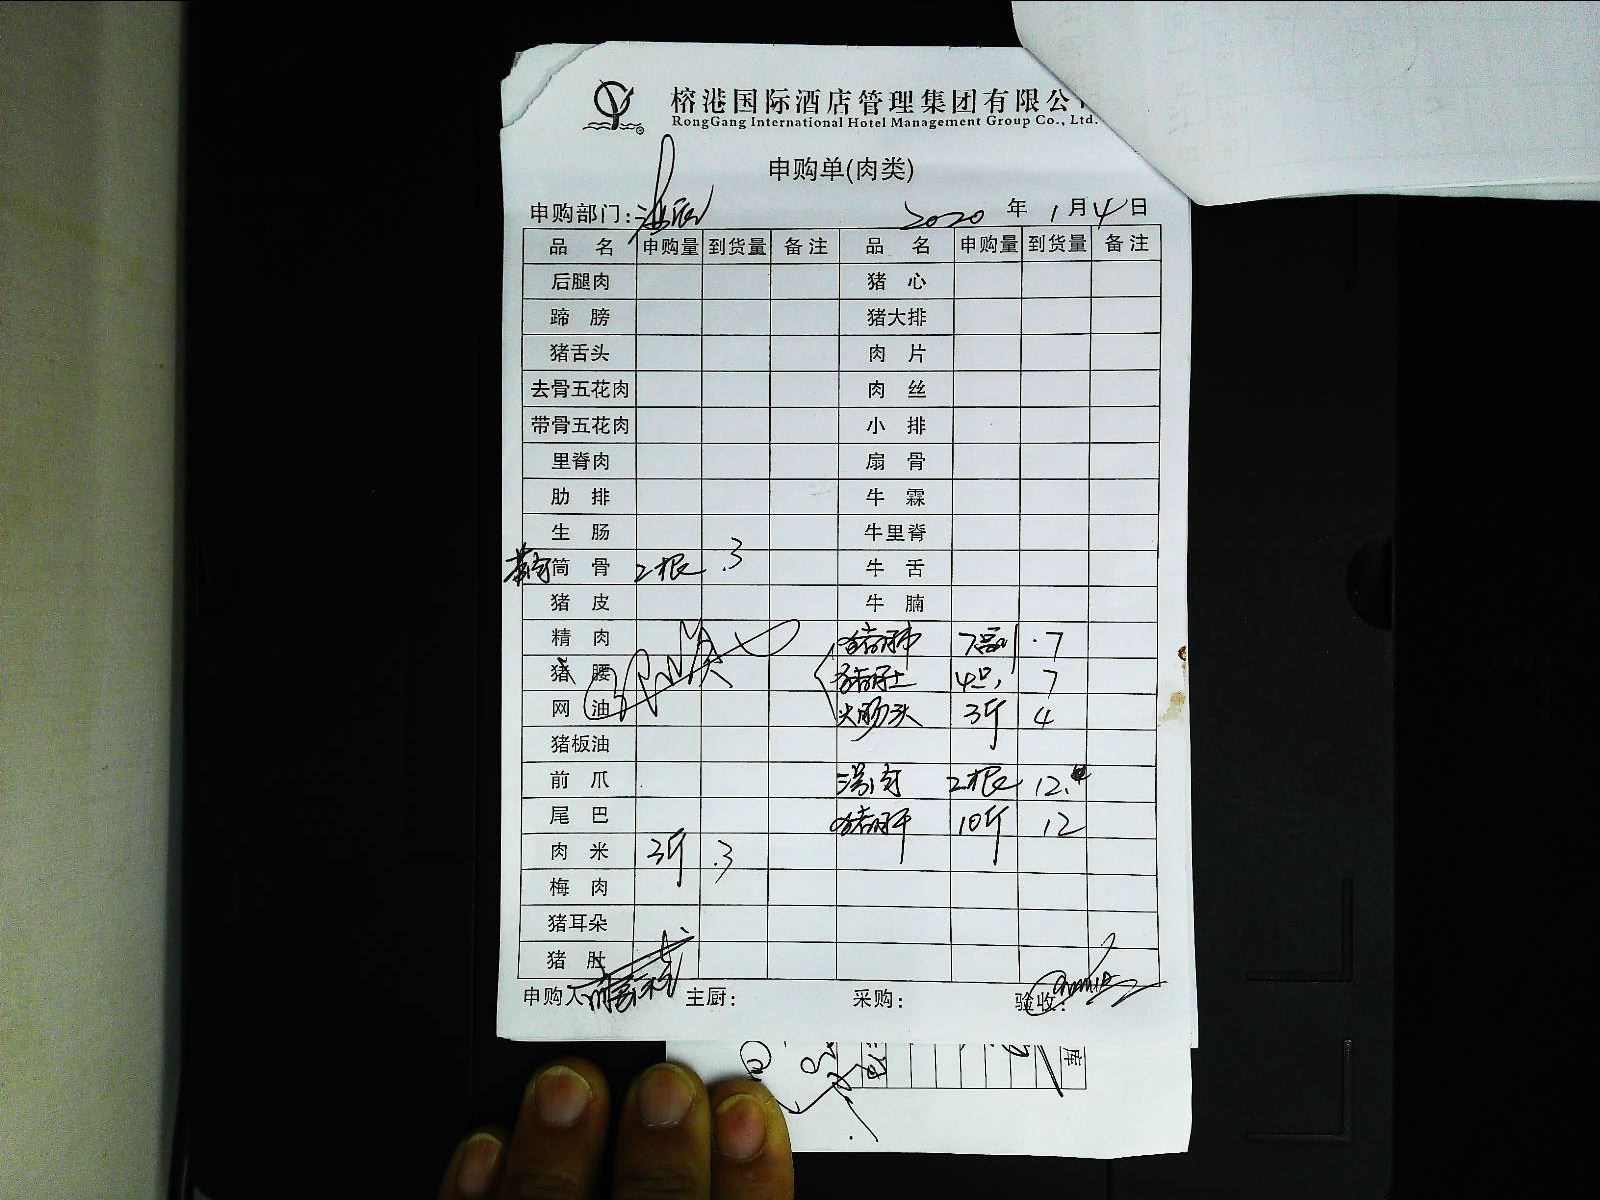 榕港国际酒店管理集团有限公
RongGang International Hotel Management Group Co., Ltd.
申购单(肉类)
申购部门:
2020 年 1 月 4 日
品 名 申购量 到货量 备注 品 名 申购量 到货量 备注
后腿肉 猪 心
蹄 膀 猪大排
猪舌头 肉 片
去骨五花肉 肉 丝
带骨五花肉 小 排
里脊肉 扇 骨
肋 排 牛 霖
生 肠 牛里脊
筒 骨 2根 .3 牛 舌
猪 皮 牛 腩
精 肉 猪肺 7副 .7
猪 腰 猪肚 4只 7
网 油 大肠头 3斤 4
猪板油
前 爪 2根 12.
尾 巴 猪肝 10斤 12
肉 米 3斤 .3
梅 肉
猪耳朵
猪 肚
申购人 主厨: 采购: 验收:
库